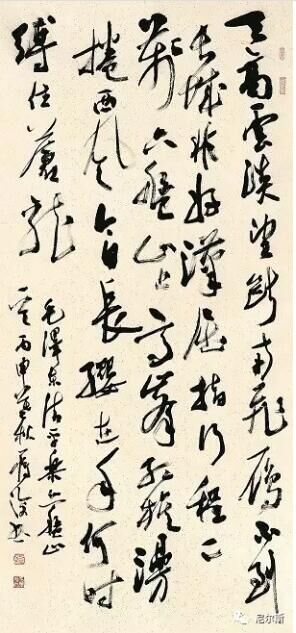 天高雲淡望斷南飛雁不到
長城非好漢屈指行程二
萬六盤山上高峰紅旗漫
捲西風今日長纓在手何時
縛住蒼龍
毛澤東清平樂六盤山
丙申 秋 書
尼尔斯